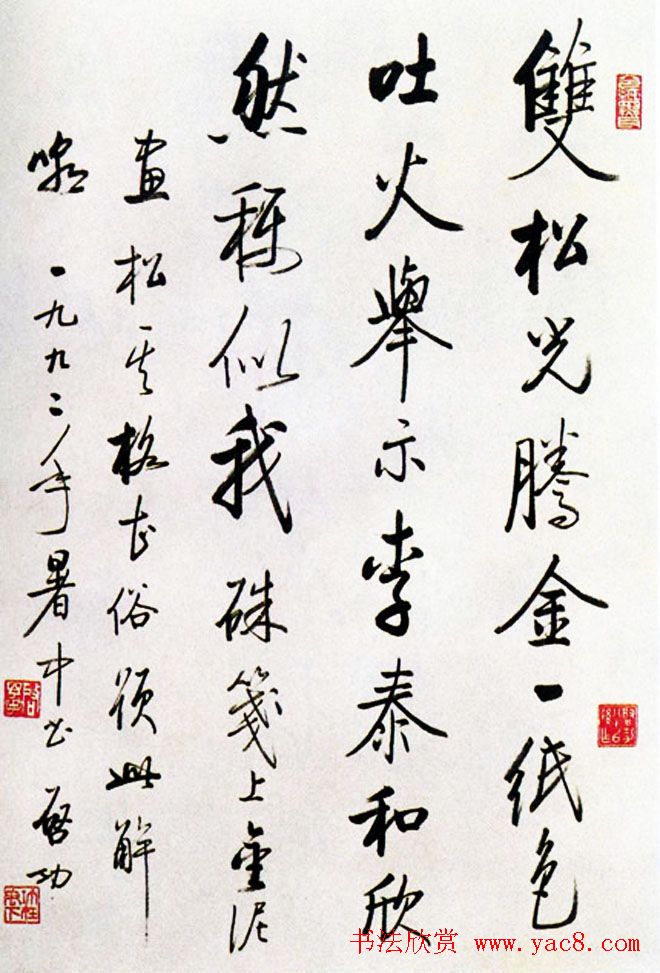 雙松光騰金一紙色
吐火舉示李泰和欣
然稱似我 硃箋上金泥
畫松其格甚俗須此解
嘲 一九九二年暑中书 啟功
书法欣赏 www.yac8.com